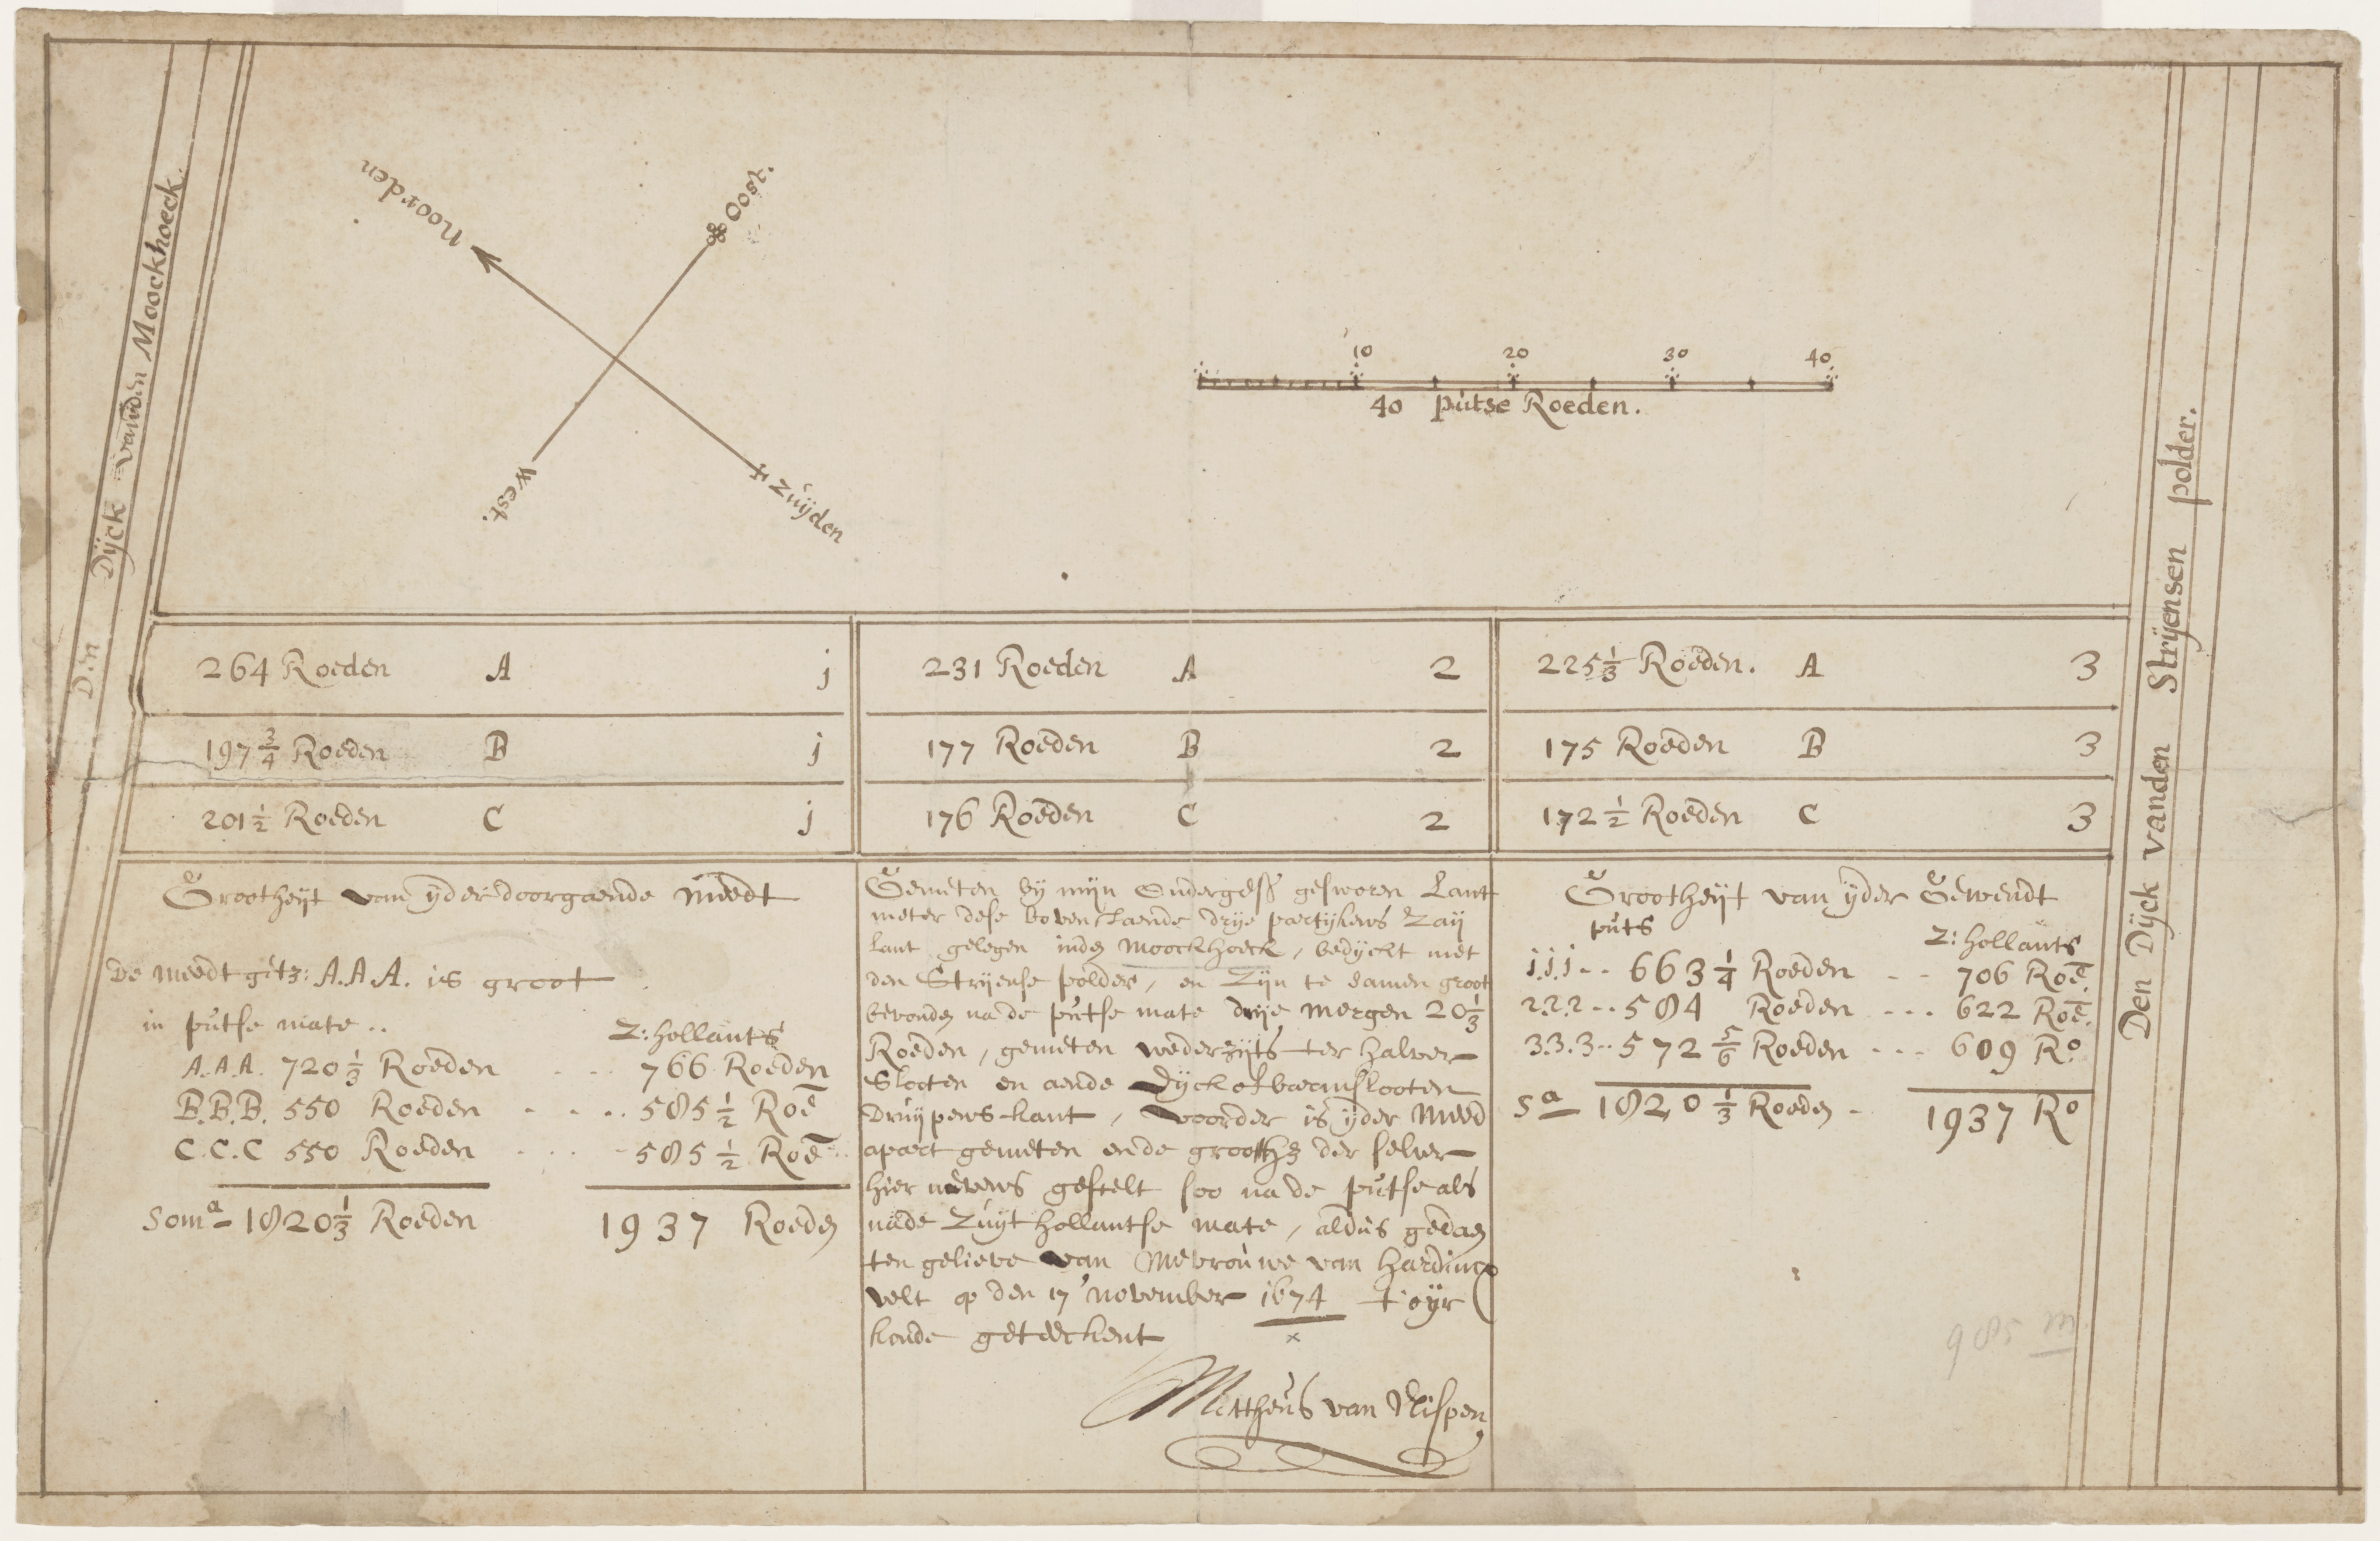 Noorden
Oost.
West.
Zuijden
10 20 30 40
40 putse Roeden.
Den Dijck vanden Moockhoeck.
Den Dijck vanden Strijensen polder.
264 Roeden A j
231 Roeden A 2
225 1/3 Roeden. A 3
197 3/4 Roeden B j
177 Roeden B 2
175 Roeden B 3
201 1/2 Roeden C j
176 Roeden C 2
172 1/2 Roeden C 3
Grootheijt van ijder doorgaende meedt
De meedt get: A.A.A. is groot
in putse mate ..
Z: hollants
A.A.A. 720 1/3 Roeden .... 766 Roeden
B.B.B. 550 Roeden .... 585 1/2 Roē
C.C.C 550 Roeden .... 585 1/2 Roē
Somᵃ 1820 1/3 Roeden 1937 Roeden
Gemeten bij mijn Onderges gesworen Lant
meter dese bovenstaende drije partijkens Zaij
lant gelegen inden Moockhoeck, bedijckt met
den Strijense polder, en Zijn te samen groot
bevonden na de putse mate drije mergen 20 1/3
Roeden, gemeten wederzijts ter halver
Slooten en aende Dijck of
Druijpens kant, voorder is ijder meed
apart gemeten ende grooth der selver
hier nevens gestelt soo na de putse als
nade Zuijt hollantse mate, aldus gedaen
ten gelieve van Mevrouwe van Hardincx
velt op den 17 november 1674 t'oijr
konde geteeckent
x
Mattheus van Nispen
Grootheijt van ijder Gewendt
puts
Z: hollants
j.j.j .. 663 1/4 Roeden .. 706 Roē.
2.2.2 .. 584 Roeden ... 622 Roē.
3.3.3 .. 572 5/6 Roeden ... 609 Rº
Sᵃ 1820 1/3 Roeden - 1937 Rº
985 m